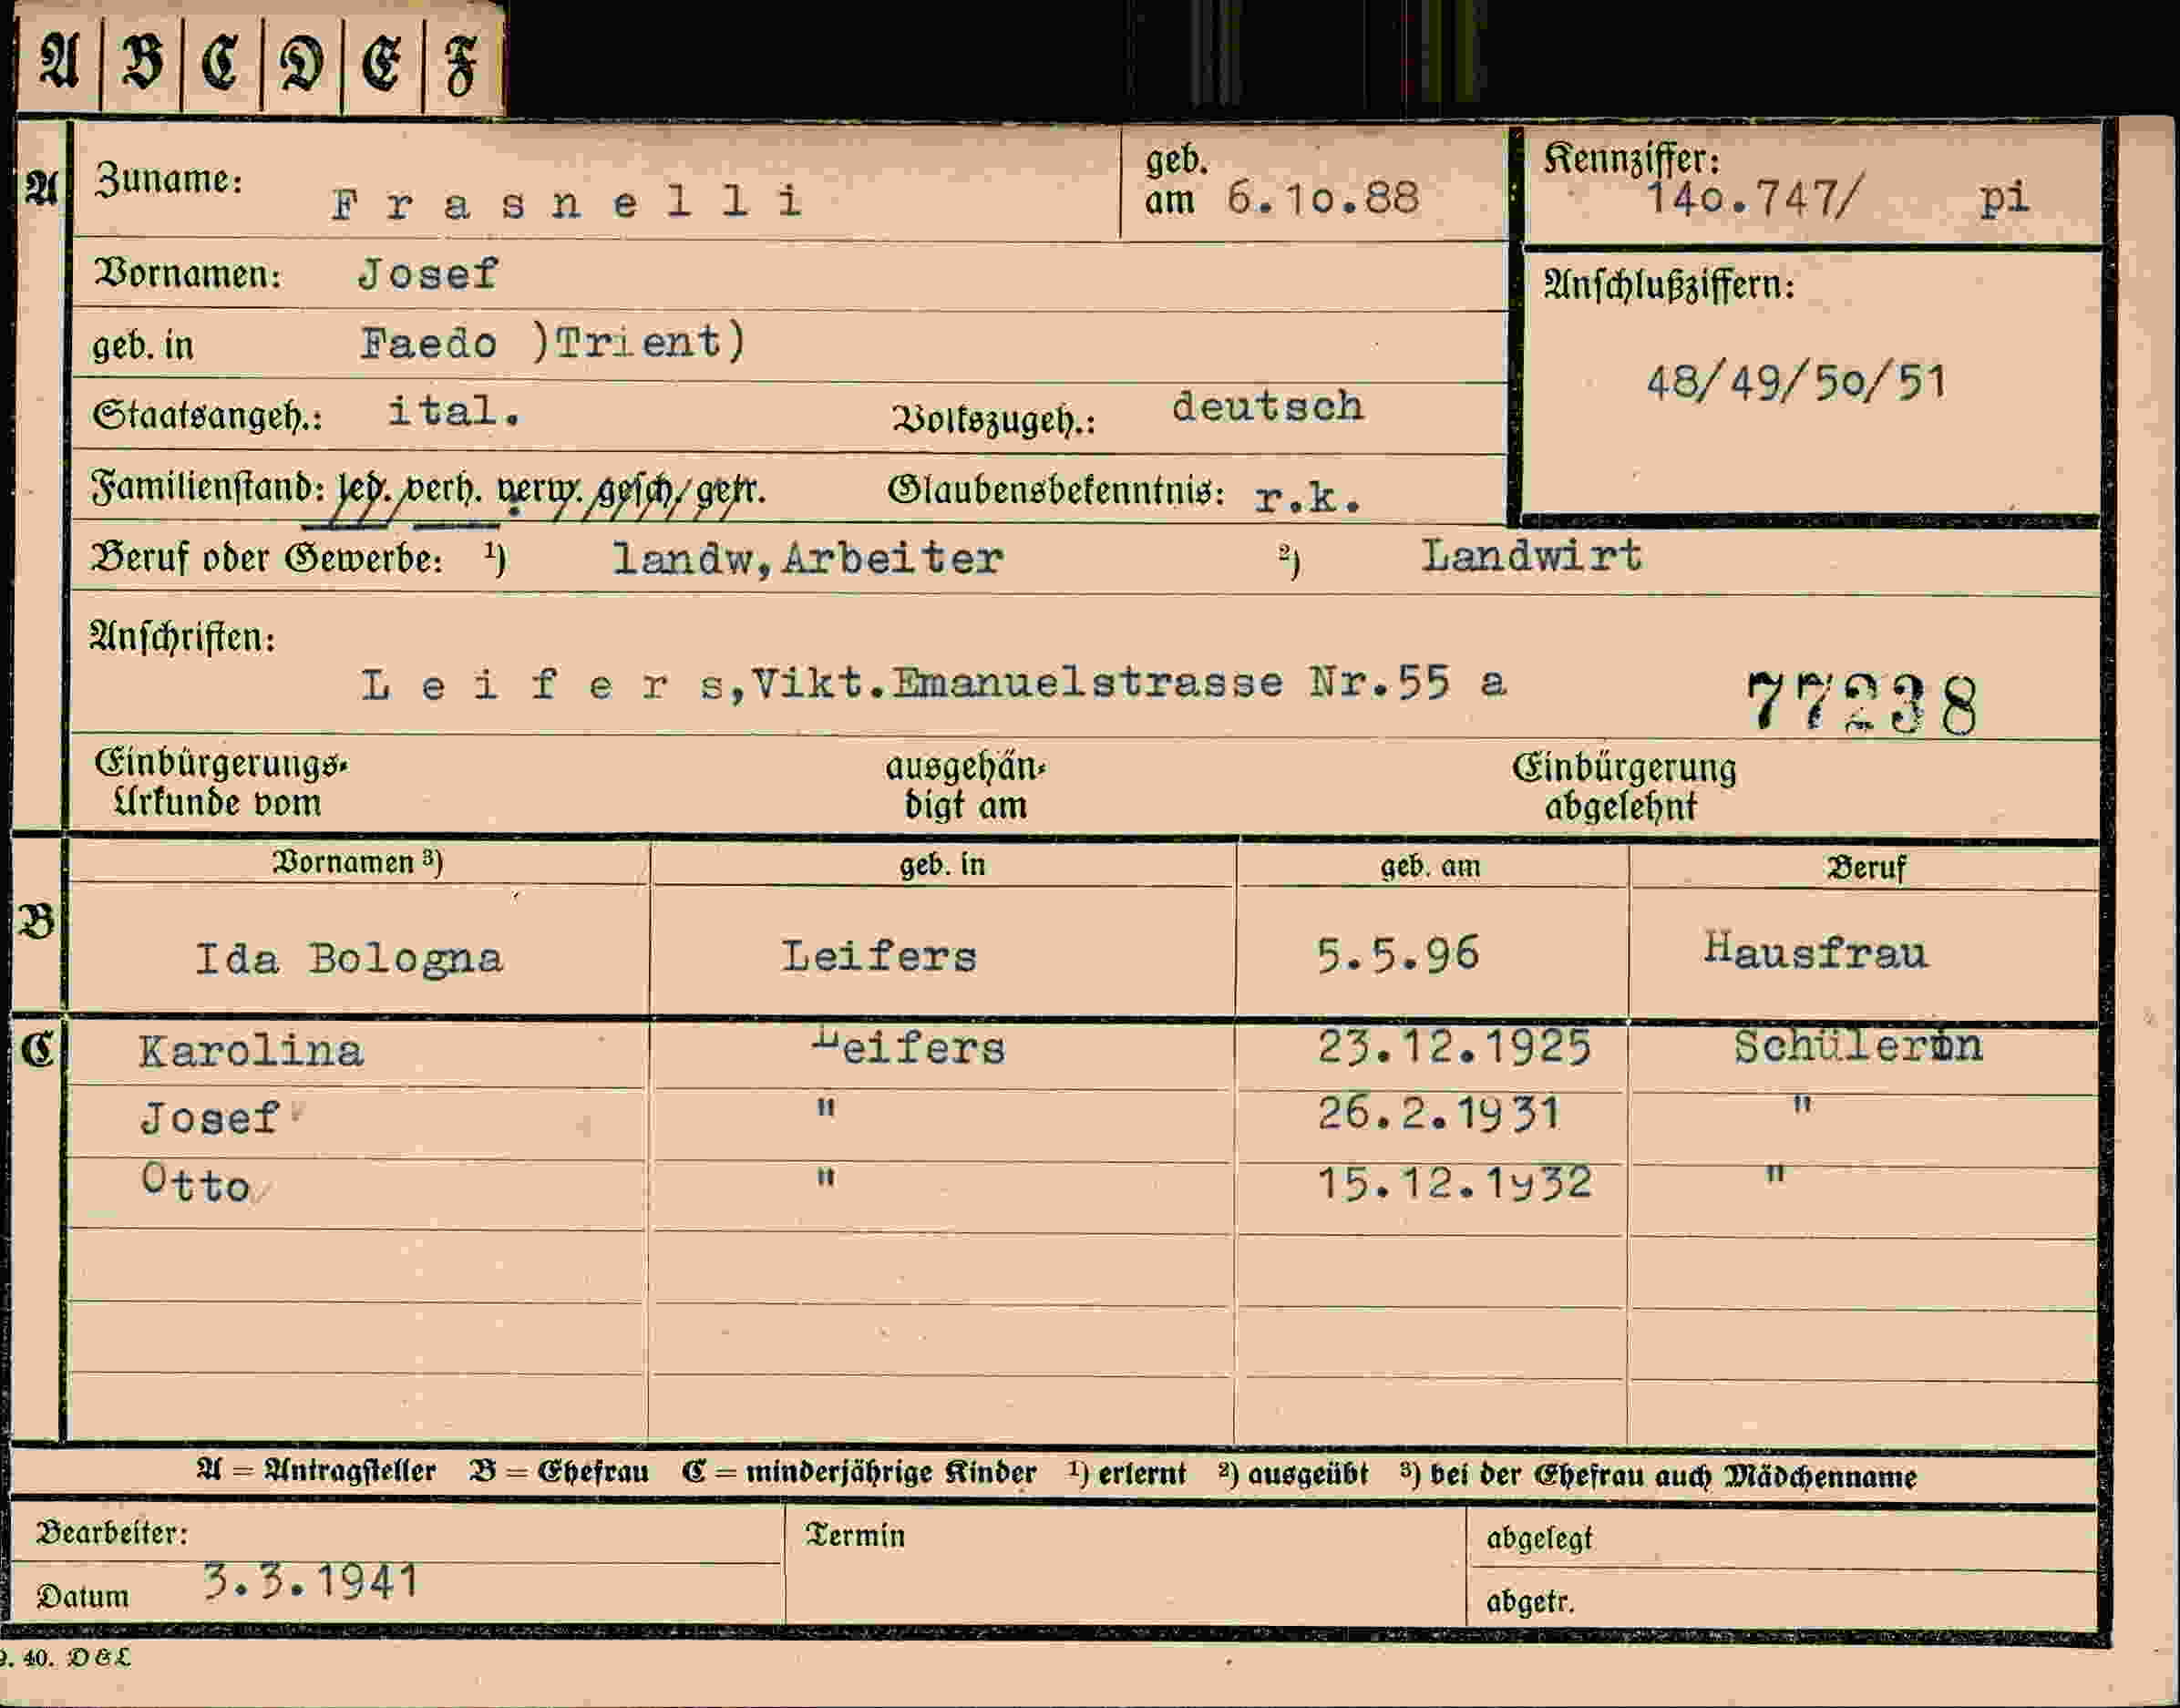 A B C D E F
A Zuname: Frasnelli geb. am 6.10.88 Kennziffer: 140.747/ pi
Vornamen: Josef
Anschlußziffern:
geb. in Faedo )Trient)
48/49/50/51
Staatsangeh.: ital. Volkszugeh.: deutsch
Familienstand: led. verh. verw. gesch. getr. Glaubensbekenntnis: r.k.
Beruf oder Gewerbe: ¹) landw,Arbeiter ²) Landwirt
Anschriften:
Leifers,Vikt.Emanuelstrasse Nr.55 a 77238
Einbürgerungs- ausgehän- Einbürgerung
Urkunde vom digt am abgelehnt
Vornamen ³) geb. in geb. am Beruf
B Ida Bologna Leifers 5.5.96 Hausfrau
C Karolina Leifers 23.12.1925 Schülerin
Josef " 26.2.1931 "
Otto " 15.12.1932 "
A = Antragsteller B = Ehefrau C = minderjährige Kinder ¹) erlernt ²) ausgeübt ³) bei der Ehefrau auch Mädchenname
Bearbeiter: Termin abgelegt
Datum 3.3.1941 abgetr.
9. 40. D & L